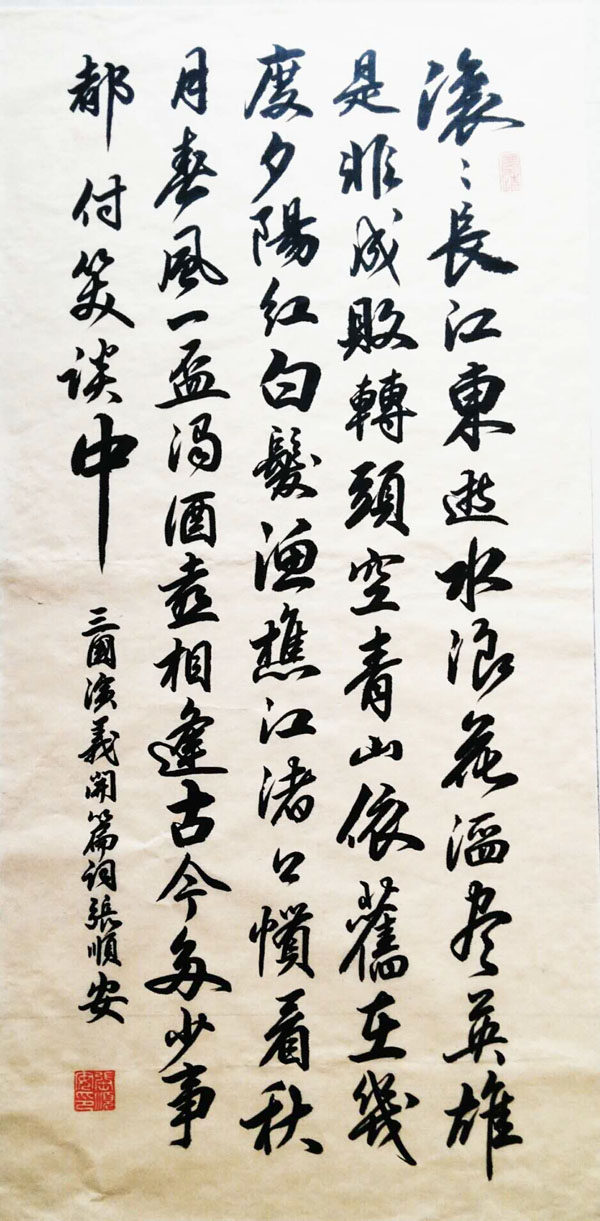 滾〻長江東逝水浪花淘尽英雄
是非成敗轉頭空青山依舊在幾
度夕陽紅白髮漁樵江渚上慣看秋
月春風一壺濁酒喜相逢古今多少事
都付笑談中
三國演義開篇詞張順安
張順安印